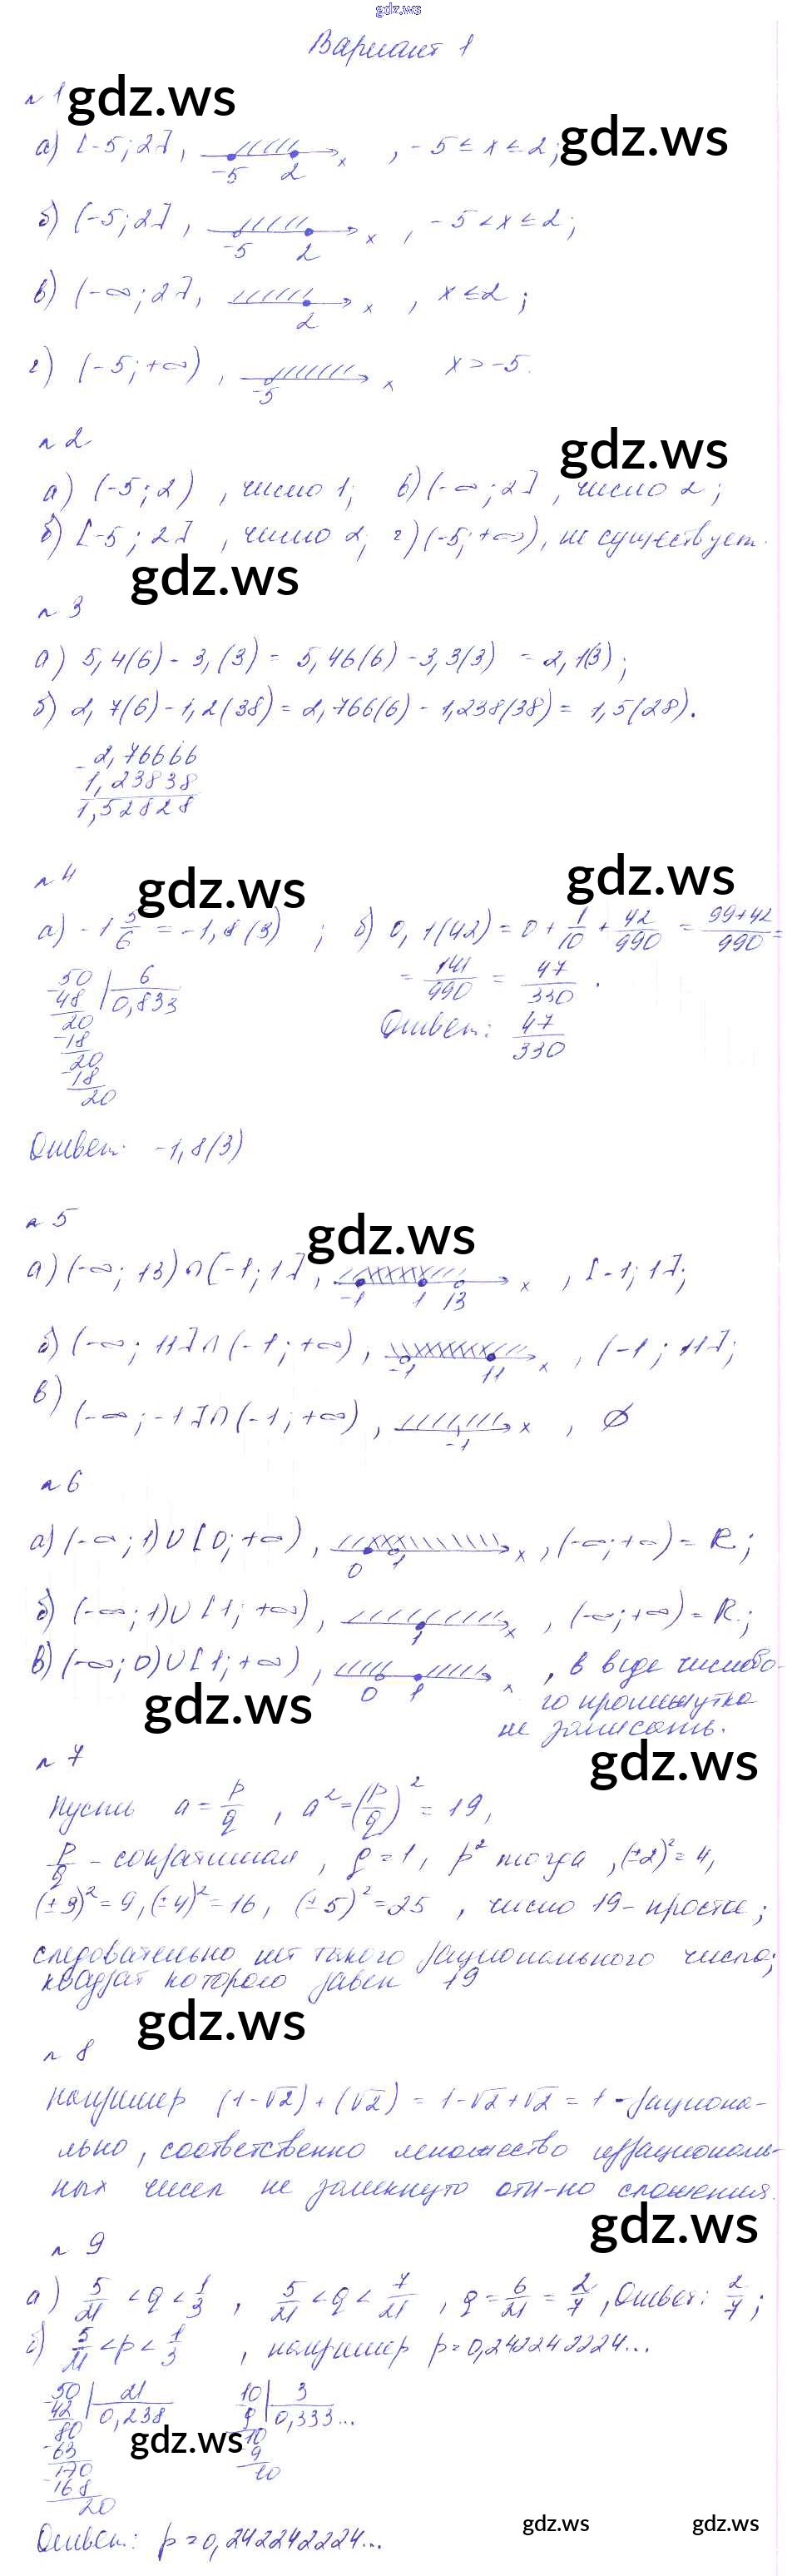 gdz.ws
Вариант 1
№ 1 gdz.ws
а) [-5; 2], -5 2 x , -5 ≤ x ≤ 2; gdz.ws
б) (-5; 2], -5 2 x , -5 < x ≤ 2;
в) (-∞; 2], 2 x , x ≤ 2;
г) (-5; +∞), -5 x x > -5.
№ 2 gdz.ws
а) (-5; 2) , число 1; в) (-∞; 2] , число 2;
б) [-5; 2] , число 2; г) (-5; +∞), не существует.
gdz.ws
№ 3
а) 5,4(6) - 3,(3) = 5,46(6) - 3,3(3) = 2,1(3);
б) 2,7(6) - 1,2(38) = 2,766(6) - 1,238(38) = 1,5(28).
- 2,76666
1,23838
1,52828
№ 4 gdz.ws gdz.ws
а) -1 5/6 = -1,8(3) ; б) 0,1(42) = 0 + 1/10 + 42/990 = 99+42/990 =
= 141/990 = 47/330 .
-50 | 6
48 | 0,833
20
-18
20
-18
20
Ответ: 47/330
Ответ: -1,8(3)
№ 5 gdz.ws
а) (-∞; 13) ∩ [-1; 1], -1 1 13 x , [-1; 1];
б) (-∞; 11] ∩ (-1; +∞), -1 11 x , (-1; 11];
в) (-∞; -1] ∩ (-1; +∞), -1 x , ∅
№ 6
а) (-∞; 1) ∪ [0; +∞), 0 1 x , (-∞; +∞) = R;
б) (-∞; 1) ∪ [1; +∞), 1 x , (-∞; +∞) = R;
в) (-∞; 0) ∪ [1; +∞), 0 1 x , в виде числово-
го промежутка
не записать.
gdz.ws
№ 7 gdz.ws
Пусть a = p/q , a² = (p/q)² = 19,
p/q - сократимая, q = 1, p² тогда, (±2)² = 4,
(±3)² = 9, (±4)² = 16, (±5)² = 25 , число 19 - простое;
следовательно нет такого рационального числа;
квадрат которого равен 19
gdz.ws
№ 8
например (1-√2) + (√2) = 1-√2+√2 = 1 - рациона-
льно, соответственно множество иррациональ-
ных чисел не замкнуто отн-но сложения.
gdz.ws
№ 9
а) 5/21 < q < 1/3 , 5/21 < q < 7/21 , q = 6/21 = 2/7, Ответ: 2/7;
б) 5/21 < p < 1/3 , например p = 0,242242224...
-50 | 21 10 | 3
42 | 0,238 9 | 0,333...
80 10
-63 9
170 10
-168
20
gdz.ws
Ответ: p = 0,242242224...
gdz.ws gdz.ws